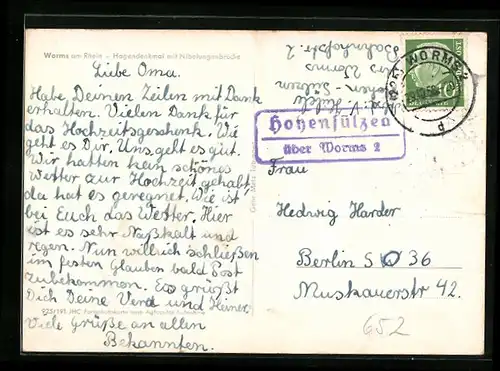 Worms am Rhein - Hagendenkmal mit Nibelungenbrücke
Liebe Oma.
Habe Deinen Zeilen mit Dank
erhalten. Vielen Dank für
das Hochzeitsgeschenk. Wie
geht es Dir. Uns geht es gut.
Wir hatten kein schönes
Wetter zur Hochzeit gehabt,
da hat es geregnet. Wie ist
bei Euch das Wetter. Hier
ist es sehr Naßkalt und
regen. Nun will ich schließen
im festen Glauben bald Post
zubekommen. Es grüßt
Dich Deine Verd und Heiner.
Viele Grüße an allen
Bekannten.
Hohensülzen
über Worms 2
WORMS 2
d
10
Sülzen
Worms
Bahnhofstr. 2
Frau
Hedwig Harder
Berlin SO 36
Muskauerstr 42.
652